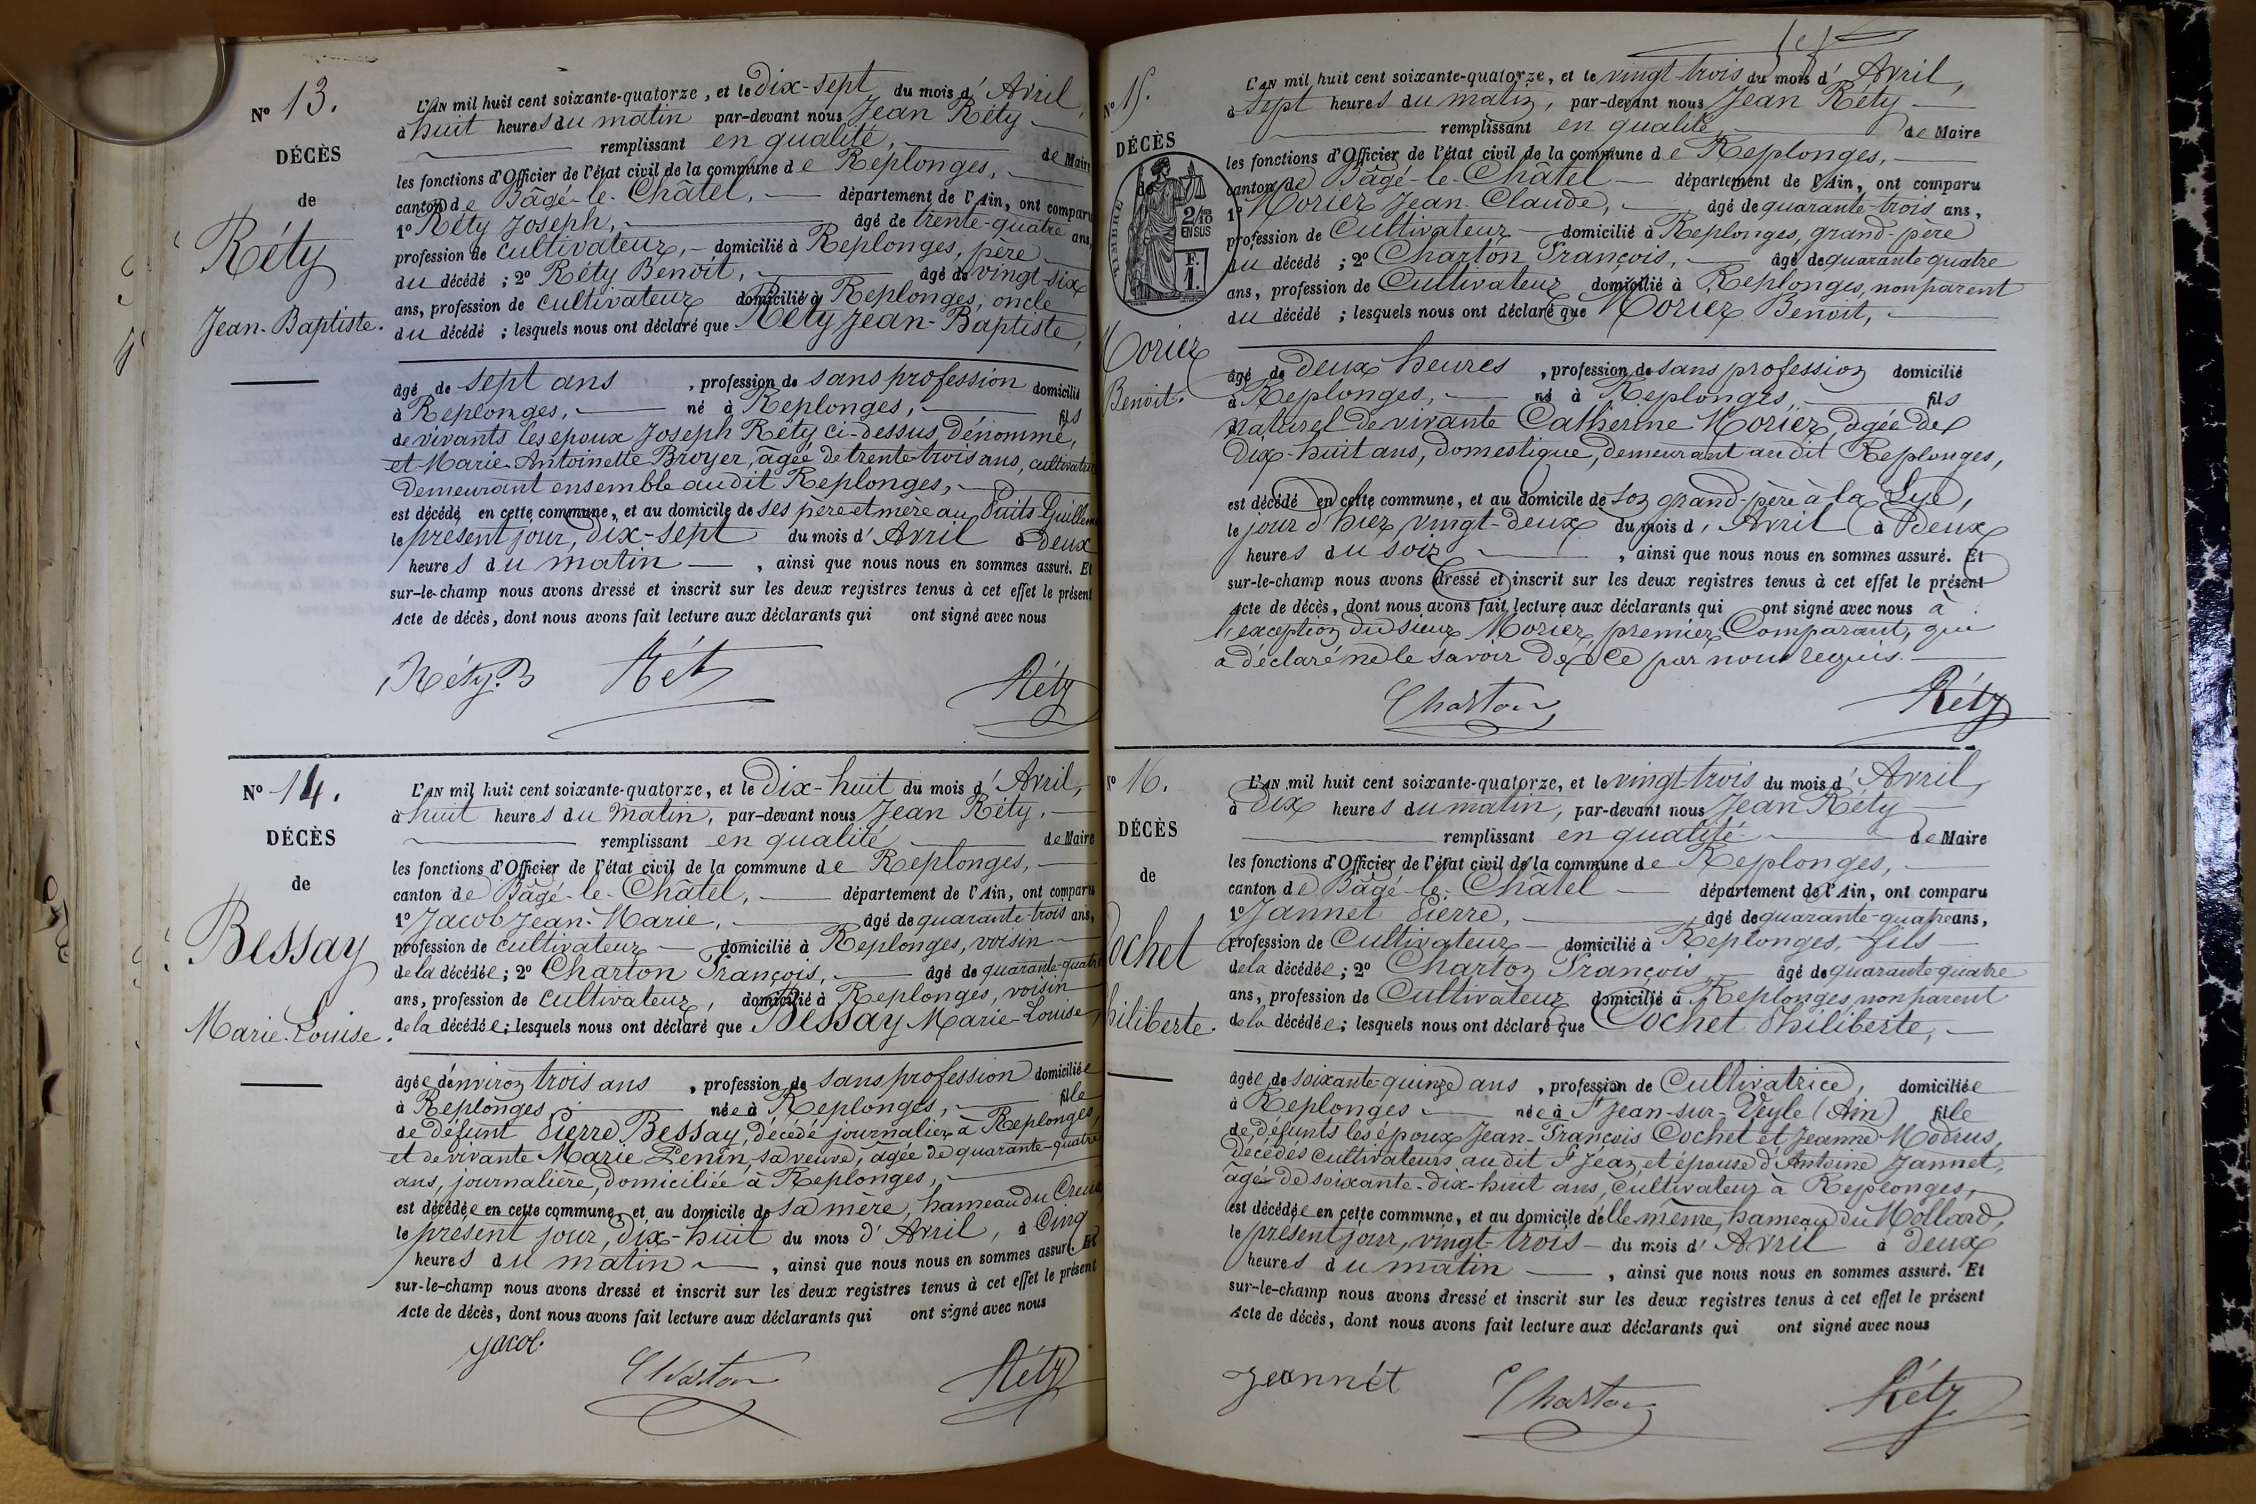 Nº 13.
DÉCÈS
de
Réty
Jean-Baptiste.
L'AN mil huit cent soixante-quatorze, et le Dix-sept du mois d'Avril,
à huit heures du matin par-devant nous Jean Réty
remplissant en qualité, de Maire
les fonctions d'Officier de l'état civil de la commune de Replonges,
canton de Bâgé-le-Châtel, département de l'Ain, ont comparu
1º Réty Joseph, âgé de trente-quatre ans,
profession de cultivateur, domicilié à Replonges, père
du décédé ; 2º Réty Benoit, âgé de vingt-six
ans, profession de cultivateur domicilié à Replonges, oncle
du décédé ; lesquels nous ont déclaré que Réty Jean-Baptiste,
âgé de sept ans, profession de sans profession domicilié
à Replonges, né à Replonges, fils
de vivants les époux Joseph Réty ci-dessus dénommé,
et Marie-Antoinette Broyer, âgée de trente-trois ans, cultivatri
demeurant ensemble audit Replonges,
est décédé en cette commune, et au domicile de ses père et mère au Puits-Guillem
le présent jour, dix-sept du mois d'Avril à deux
heures du matin, ainsi que nous nous en sommes assuré. Et
sur-le-champ nous avons dressé et inscrit sur les deux registres tenus à cet effet le présent
Acte de décès, dont nous avons fait lecture aux déclarants qui ont signé avec nous
Réty. B Réty Réty
Nº 14.
DÉCÈS
de
Bessay
Marie-Louise.
L'AN mil huit cent soixante-quatorze, et le Dix-huit du mois d'Avril,
à huit heures du matin, par-devant nous Jean Réty.
remplissant en qualité de Maire
les fonctions d'Officier de l'état civil de la commune de Replonges,
canton de Bâgé-le-Châtel, département de l'Ain, ont comparu
1º Jacob Jean-Marie, âgé de quarante-trois ans,
profession de cultivateur domicilié à Replonges, voisin
de la décédée ; 2º Charton François, âgé de quarante-quatre
ans, profession de cultivateur, domicilié à Replonges, voisin
de la décédée ; lesquels nous ont déclaré que Bessay Marie-Louise,
âgée d'environ trois ans, profession de sans profession domiciliée
à Replonges née à Replonges, fille
de défunt Pierre Bessay, décédé journalier à Replonges,
et de vivante Marie Penin, sa veuve, âgée de quarante-quatre
ans, journalière, domiciliée à Replonges,
est décédée en cette commune, et au domicile de sa mère, hameau du
le présent jour, dix-huit du mois d'Avril, à cinq
heures du matin, ainsi que nous nous en sommes assuré. Et
sur-le-champ nous avons dressé et inscrit sur les deux registres tenus à cet effet le présent
Acte de décès, dont nous avons fait lecture aux déclarants qui ont signé avec nous
Jacob. Charton Réty
Nº 15.
DÉCÈS
de
TIMBRE
2/10 EN SUS
F. 1.
Morier
Benoit.
L'AN mil huit cent soixante-quatorze, et le vingt-trois du mois d'Avril,
à sept heures du matin, par-devant nous Jean Réty
remplissant en qualité de Maire
les fonctions d'Officier de l'état civil de la commune de Replonges,
canton de Bâgé-le-Châtel département de l'Ain, ont comparu
1º Morier Jean-Claude, âgé de quarante-trois ans,
profession de Cultivateur domicilié à Replonges, grand-père
du décédé ; 2º Charton François, âgé de quarante-quatre
ans, profession de Cultivateur domicilié à Replonges, non parent
du décédé ; lesquels nous ont déclaré que Morier Benoit,
âgé de deux heures, profession de sans profession domicilié
à Replonges, né à Replonges, fils
naturel de vivante Catherine Morier, âgée de
dix-huit ans, domestique, demeurant audit Replonges,
est décédé en cette commune, et au domicile de son grand-père à la Lye,
le jour d'hier, vingt-deux du mois d'Avril à deux
heures du soir, ainsi que nous nous en sommes assuré. Et
sur-le-champ nous avons dressé et inscrit sur les deux registres tenus à cet effet le présent
Acte de décès, dont nous avons fait lecture aux déclarants qui ont signé avec nous à
l'exception du sieur Morier, premier Comparant, qui
a déclaré ne le savoir de ce par nous requis.
Charton Réty
Nº 16.
DÉCÈS
de
Cochet
Philiberte.
L'AN mil huit cent soixante-quatorze, et le vingt-trois du mois d'Avril,
à Dix heures du matin, par-devant nous Jean Réty
remplissant en qualité de Maire
les fonctions d'Officier de l'état civil de la commune de Replonges,
canton de Bâgé-le-Châtel département de l'Ain, ont comparu
1º Jannet Pierre, âgé de quarante-quatre ans,
profession de Cultivateur domicilié à Replonges, fils
de la décédée ; 2º Charton François, âgé de quarante-quatre
ans, profession de Cultivateur domicilié à Replonges, non parent
de la décédée ; lesquels nous ont déclaré que Cochet Philiberte,
âgée de soixante-quinze ans, profession de Cultivatrice, domiciliée
à Replonges née à St Jean-sur-Veyle (Ain) fille
de défunts les époux Jean-François Cochet et Jeanne Modrus,
décédés cultivateurs audit St Jean, et épouse d'Antoine Jannet,
âgé de soixante-dix-huit ans, cultivateur à Replonges,
est décédée en cette commune, et au domicile d'elle même, hameau du Mollard,
le présent jour, vingt-trois du mois d'Avril à deux
heures du matin, ainsi que nous nous en sommes assuré. Et
sur-le-champ nous avons dressé et inscrit sur les deux registres tenus à cet effet le présent
Acte de décès, dont nous avons fait lecture aux déclarants qui ont signé avec nous
Jeannét Charton Réty